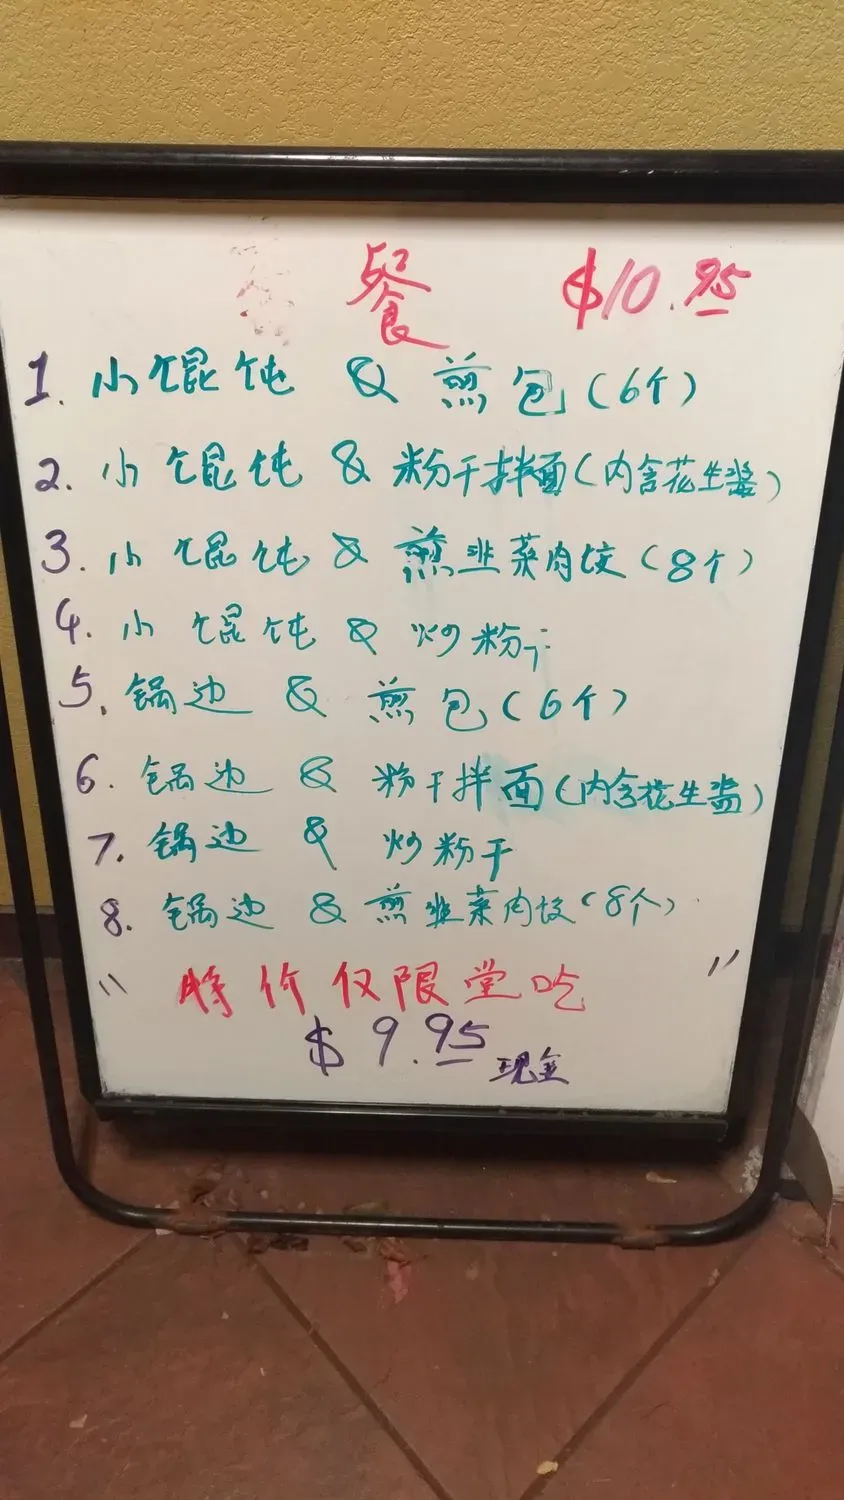 餐 $10.95
1. 小馄饨 & 煎包(6个)
2. 小馄饨 & 粉干拌面(内含花生酱)
3. 小馄饨 & 煎韭菜肉饺(8个)
4. 小馄饨 & 炒粉干
5. 锅边 & 煎包(6个)
6. 锅边 & 粉干拌面(内含花生酱)
7. 锅边 & 炒粉干
8. 锅边 & 煎韭菜肉饺(8个)
"特价仅限堂吃"
$9.95 现金